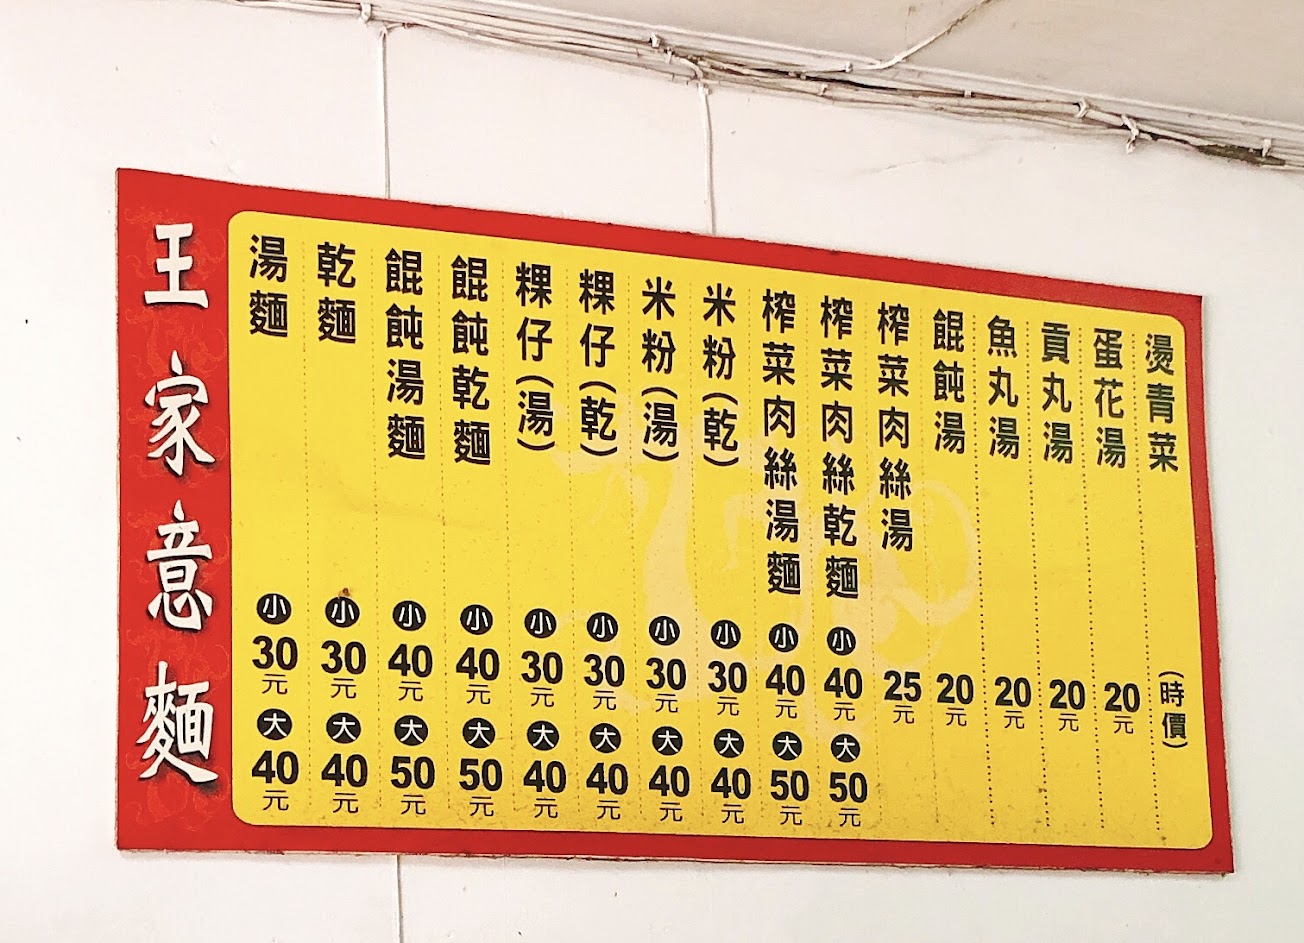 王家意麵
湯麵 小 30元 大 40元
乾麵 小 30元 大 40元
餛飩湯麵 小 40元 大 50元
餛飩乾麵 小 40元 大 50元
粿仔(湯) 小 30元 大 40元
粿仔(乾) 小 30元 大 40元
米粉(湯) 小 30元 大 40元
米粉(乾) 小 30元 大 40元
榨菜肉絲湯麵 小 40元 大 50元
榨菜肉絲乾麵 小 40元 大 50元
榨菜肉絲湯 25元
餛飩湯 20元
魚丸湯 20元
貢丸湯 20元
蛋花湯 20元
燙青菜 (時價)